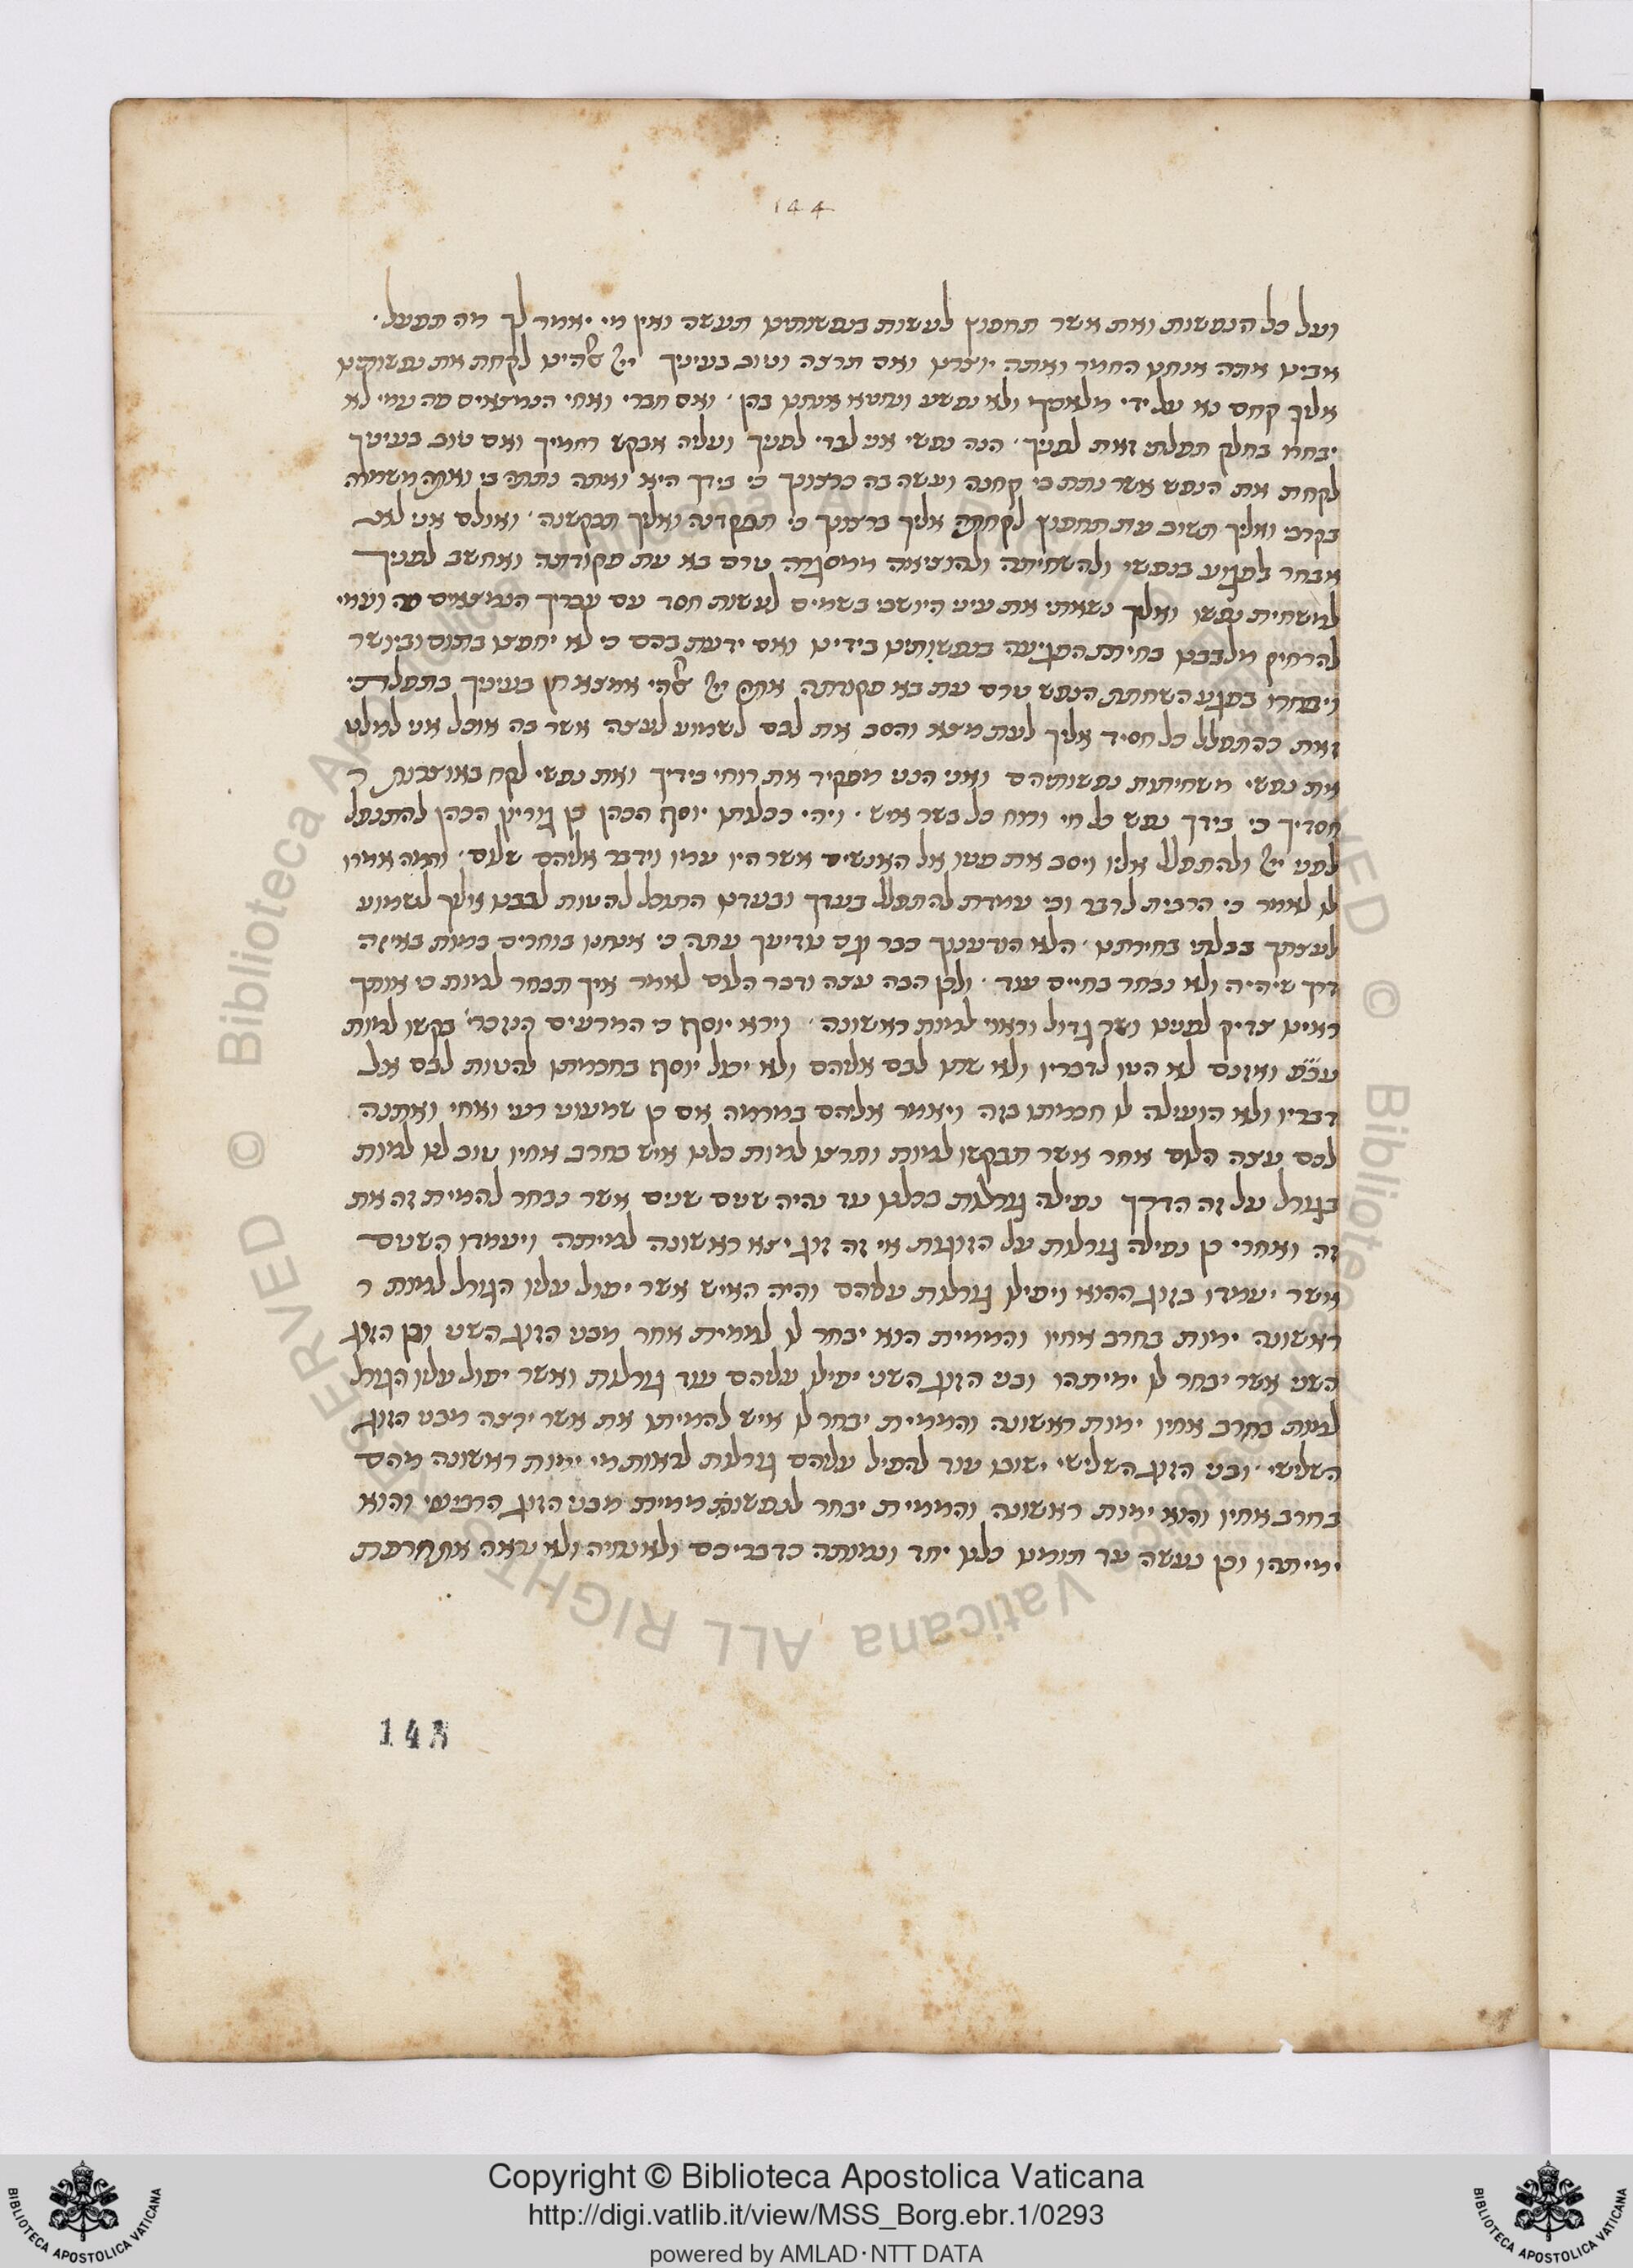 144
ועל כל הנפשות ואת אשר תחפוץ לעשות בנפשותינו תעשה ואין מי יאמר לך מה תפעל ·
אבינו אתה אנחנו החמר ואתה יוצרנו ואם תרצה וטוב בעיניך ייי אלהינו לקחת את נפשותינו
אליך קחם נא על ידי מלאכך ולא נפשע ונחטא אנחנו בהן · ואם חברי ואחי הנמצאים פה עמי לא
יבחרו בחלק תפלתי זאת לפניך · הנה נפשי אני לבדי לפניך ועליה אבקש רחמיך ואם טוב בעיניך
לקחת את הנפש אשר נתת בי קחנה ועשה בה כרצונך כי בידך היא ואתה נתתה בי ואתה משמרה
בקרבי ואליך תשוב עת תחפוץ לקחתה אליך ברצונך כי תפקדנה ואליך תבקשנה · ואולם אני לא
אבחר לפגוע בנפשי ולהשחיתה ולהוציאה ממסגרה טרם בא עת פקודתה ואחשב לפניך
למשחית נפשו ואליך נשאתי את עיני היושבי בשמים לעשות חסד עם עבדיך הנמצאים פה ועמי
להרחיק מלבבנו בחירת הפגיעה בנפשותינו בידינו ואם ידעת בהם כי לא יחפצו בתום וביושר
ויבחרו בפגע השחתת הנפש טרם עת בא פקודתה אתה ייי אלהי אמצא חן בעיניך בתפלתי
זאת כהתפלל כל חסיד אליך לעת מצא והסב את לבם לשמוע לעצה אשר בה אוכל אני למלט
את נפשי משחיתות נפשותיהם ואני הנני מפקיד את רוחי בידיך ואת נפשי לקח באוצרות ר
חסדיך כי בידך נפש כל חי ורוח כל בשר איש · ויהי ככלותו יוסף הכהן בן גוריון הכהן להתנפל
לפני ייי ולהתפלל אליו ויסב את פניו אל האנשים אשר היו עמו וידבר אליהם שלום · והמה אמרו
לו לאמר כי הרבית לדבר וכי עמדת להתפלל בעדך ובעדנו התוכל להטות לבבנו אליך לשמוע
לעצתך בבלתי בחירתנו · הלא הודענוך כבר עם עדיעך עתה כי אנחנו בוחרים במות באיזה
דרך שיהיה ולא נבחר בחיים עוד · ולכן הבה עצה ודבר הלום לאמר איך תבחר למות כי אותך
ראינו צדיק לפנינו ושר גדול וראוי למות ראשונה · וירא יוסף כי המרעים הנזכר׳ בקשו למות
ואזנם לא הטו לדבריו ולא שתו לבם אליהם ולא יכול יוסף בחכמתו להטות לבם אל
דבריו ולא הועילה לו חכמתו בזה ויאמר אליהם במרמה אם כן שמעוני רעי ואחי ואתנה
לכם עצה הלום אחר אשר תבקשו למות ותרצו למות כלנו איש בחרב אחיו טוב לנו למות
בגורל על זה הדרך נפילה גורלות בכלנו עד נהיה שנים שנים אשר נבחר להמית זה את
זה ואחרי כן נפילה גורלות על הזוגות אי זה זוג יצא ראשונה למיתה ויעמדו השנים
אשר יעמדו בזוג ההוא ויפילו גורלות עליהם והיה האיש אשר יפול עליו הגורל למות ר
ראשונה ימות בחרב אחיו והממית הוא יבחר לו לממית אחר מבני הזוג השני וכן הזוג
השני אשר יבחר לו ימיתהו ובני הזוג השני יפילו עליהם עוד גורלות ואשר יפול עליו הגורל
למות בחרב אחיו ימות ראשונה והממית יבחר לו איש להמיתו את אשר ירצה מבני הזוג
השלישי · ובני הזוג השלישי ישובו עוד להפיל עליהם גורלות לראות מי ימות ראשונה מהם
בחרב אחיו והוא ימות ראשונה והממית יבחר לנפשו ממית מבני הזוג הרביעי והוא
ימיתהו וכן נעשה עד תומנו כלנו יחד ונמותה כדבריכם ולא נחיה ולא נראה את חרפת
148
© Biblioteca Apostolica Vaticana ALL RIGHTS RESERVED
Copyright © Biblioteca Apostolica Vaticana
http://digi.vatlib.it/view/MSS_Borg.ebr.1/0293
powered by AMLAD·NTT DATA
BIBLIOTECA APOSTOLICA VATICANA
BIBLIOTECA APOSTOLICA VATICANA